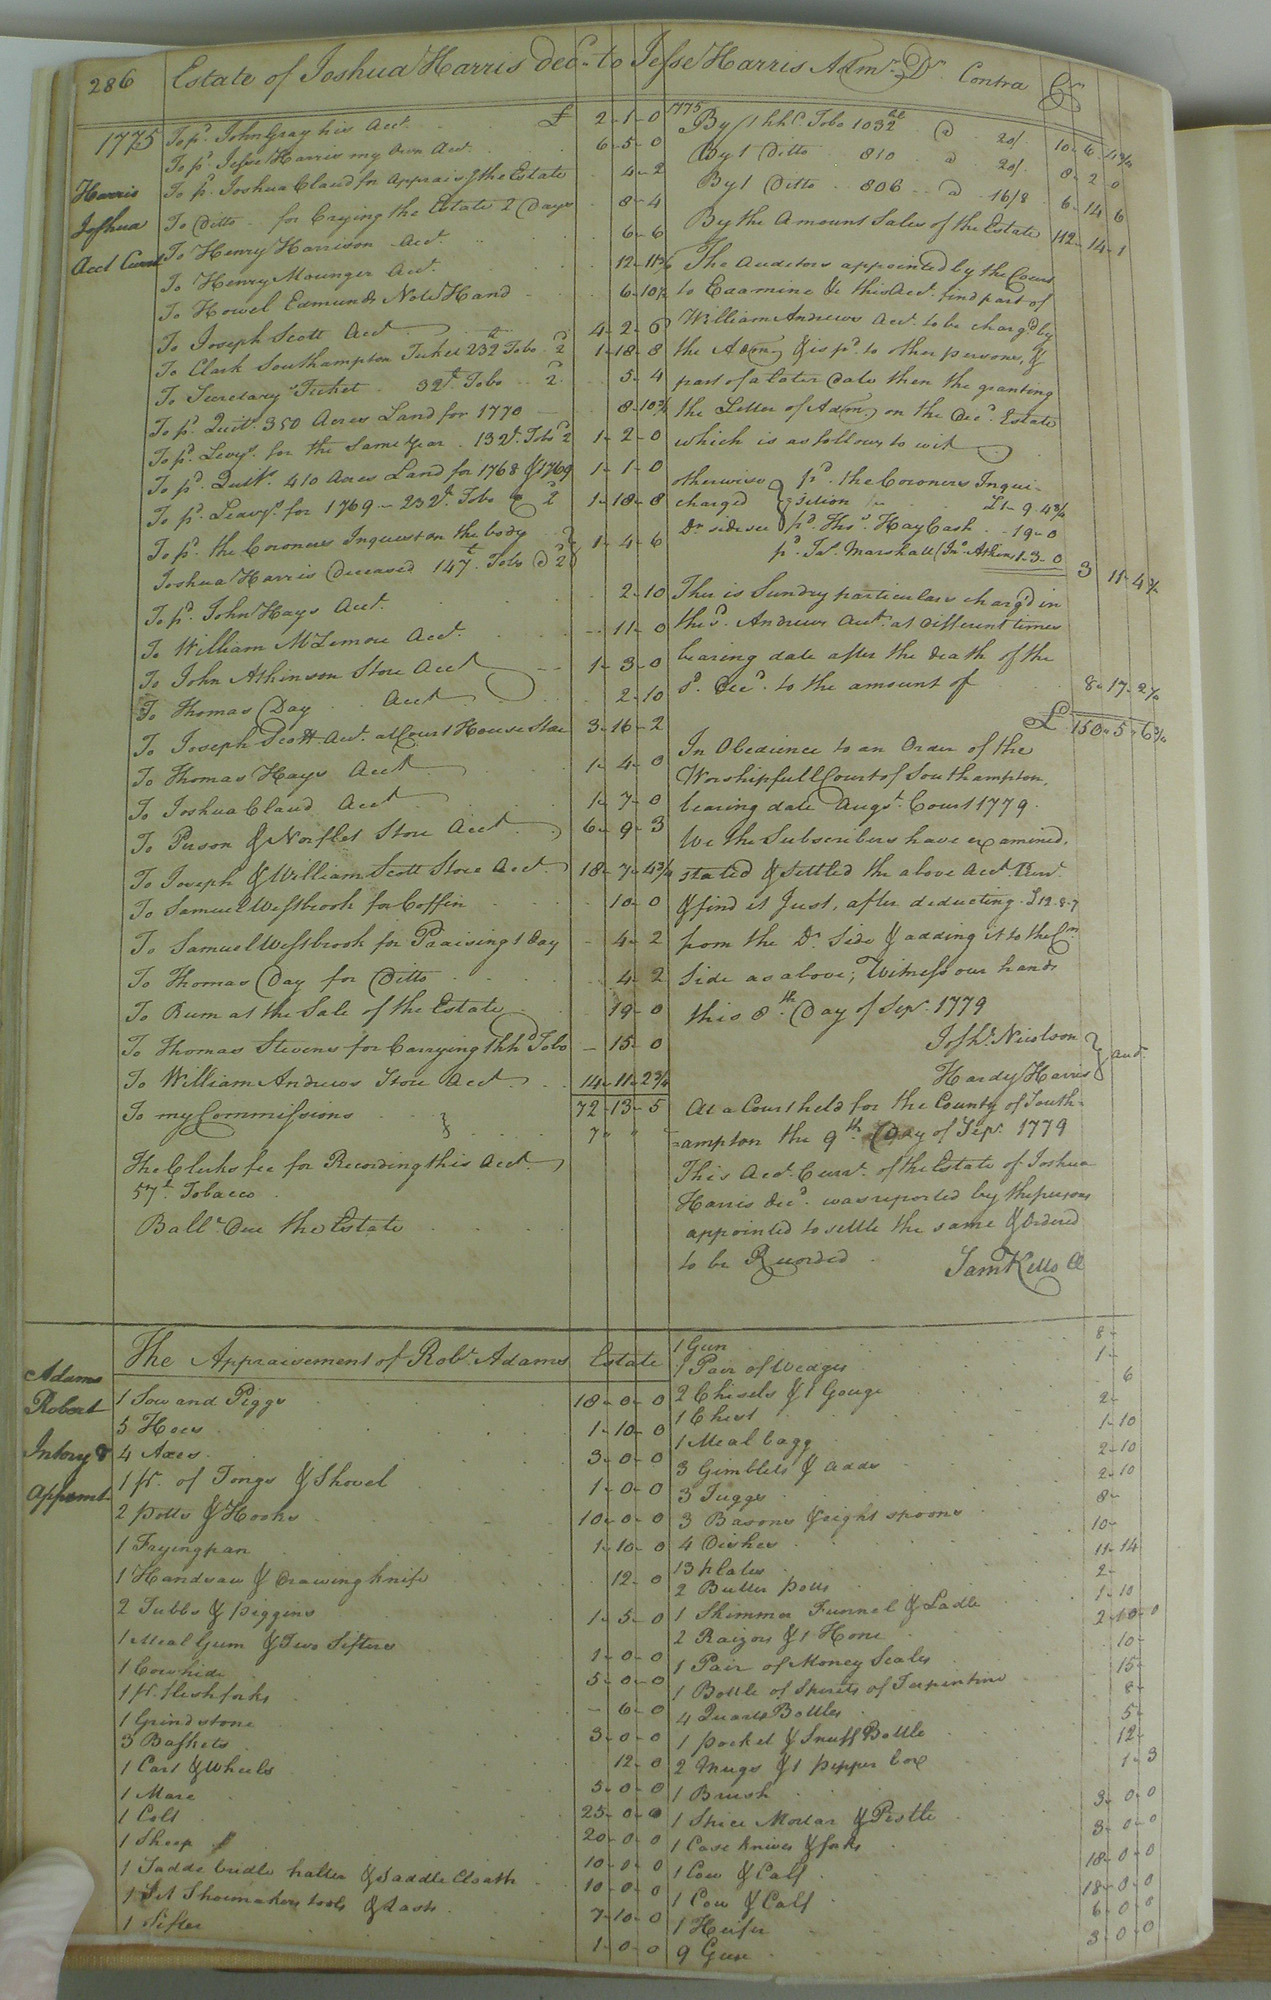 286 Estate of Joshua Harris decd. to Jesse Harris Admr. Dr. Contra Cr
1775 To pd. John Gray his Acct. £ 2-1-0
To pd. Jesse Harris my Own Acct. 6-5-0
To pd. Joshua Claud for Appraisg the Estate 4-2
To Ditto for Crying the Estate 2 Days 8-4
To Henry Harrison Acct. 6-6
To Henry Mounger Acct. 12-11¾
To Howel Edmunds Note Hand 6-10½
To Joseph Scott Acct. 4-2-6
To Clark Southampton Ticket 232 lt. Tobo @ 2d 1-18-8
To Secretary Ticket 32 lt. Tobo 2d 5-4
To pd. Quits. 350 Acres Land for 1770 8-10¾
To pd. Levys. for the Same Year 132 lt. Tobo 2d 1-2-0
To pd. Quits. 410 Acres Land for 1768 & 1769 1-1-0
To pd. Leavys. for 1769 - 232 lt. Tobo @ 2d 1-18-8
To pd. the Coroners Inquest on the body
Joshua Harris Deceased 147 lt. Tobo @ 2d 1-4-6
To pd. John Hays Acct. 2-10
To William McLemore Acct. 11-0
To John Atkinson Store Acct 1-3-0
To Thomas Day Acct 2-10
To Joseph Scott Acct. at Court House Store 3-16-2
To Thomas Hays Acct 1-4-0
To Joshua Claud Acct 1-7-0
To Person & Norflet Store Acct 6-9-3
To Joseph & William Scott Store Acct. 18-7-4¾
To Samuel Westbrook for Coffin 10-0
To Samuel Westbrook for Praising 1 day - 4-2
To Thomas Day for Ditto 4-2
To Rum at the Sale of the Estate 19-0
To Thomas Stevens for Carrying 1 hhd Tobo - 15-0
To William Andrews Store Acct. 14-11-2¾
72-13-5
To my Commissions 7 " "
The Clerks fee for Recording this Acct.
57 lt. Tobacco
Balle. Due the Estate
Harris
Joshua
Acct Currt
1775 By 1 hhd. Tobo 1032 lt @ 20/ 10-6-4¾
By 1 Ditto 810 @ 20/ 8-2-0
By 1 Ditto 806 @ 16/8 6-14-6
By the Amount Sales of the Estate 112-14-1
The Auditors appointed by the Court
to Examine &c this Acct. find part of
William Andrews Acct. to be chargd by
the Admr & is pd. to other persons, &
part of a later date then the granting
the Letter of Admr on the Decd. Estate
which is as follows to wit
otherwise charged Dr side see
pd. the Coroners Inquisition £1-9-4¾
pd. Thos. Hay Cash 19-0
pd. Jas. Marshall (Jno. Atkins) 1-3-0 3 11-4¾
This is Sundry particulars chargd in
the sd. Andrews Acct. at Different times
bearing date after the death of the
sd. Decd. to the amount of 8-17-2¼
£ 150-5-6¾
In Obedience to an Order of the
Worshipfull Court of Southampton,
bearing date Augst. Court 1779.
We the Subscribers have examined,
stated & settled the above Acct. Curt.
& find it Just, after deducting £12-8-7
from the Dr. Side & adding it to the Cr.
Side as above; Witness our hands
this 8th Day of Sepr. 1779
Joshe. Nicolson
Hardy Harris } aud.
At a Court held for the County of South=
=ampton the 9th Day of Sepr. 1779
This Acct. Curt. of the Estate of Joshua
Harris decd. was reported by the persons
appointed to settle the same & Ordered
to be Recorded
Sam Kello Cl
The Appraisement of Robt. Adams Estate
Adams
Robert
Intory &
Appramt.
1 Sow and Piggs 18-0-0
5 Hoes 1-10-0
4 Axes 3-0-0
1 pr. of Tongs & Shovel 1-0-0
2 potts & Hooks 10-0-0
1 Fryingpan 1-10-0
1 Handsaw & Drawing knife 12-0
2 Tubbs & piggins 1-5-0
1 Meal Gum & Two Sifters 1-0-0
1 Cow hide 5-0-0
1 pr. fleshforks - 6-0
1 Grindstone 3-0-0
3 Baskets 12-0
1 Cart & Wheels 5-0-0
1 Mare 25-0-0
1 Colt 20-0-0
1 Sheep 10-0-0
1 Sadde bridle halter & Saddle Cloath 10-0-0
1 Set Shoemakers tools & Lasts 7-10-0
1 Sifter 1-0-0
1 Gun 8-
1 Pair of Wedges 1-
2 Chisels & 1 Gouge 6
1 Chest 2-
1 Meal bagg 1-10
3 Gimblets & Adds 2-10
3 Juggs 2-10
3 Basons & eight spoons 8-
4 Dishes 10-
13 plates 11-14
2 Butter potts 2-
1 Skimmer Funnel & Ladle 1-10
2 Raizors & 1 Hone 2-10-0
1 Pair of Money Scales 10-
1 Bottle of Spirits of Turpintine 15-
4 Quart Bottles 8-
1 pocket & Snuff Bottle 5-
2 Mugs & 1 pepper box 12-
1 Brush 1-3
1 Spice Mortar & Pestle 3-0-0
1 Case knives & forks 3-0-0
1 Cow & Calf 18-0-0
1 Cow & Calf 18-0-0
1 Heifer 6-0-0
9 Geese 3-0-0